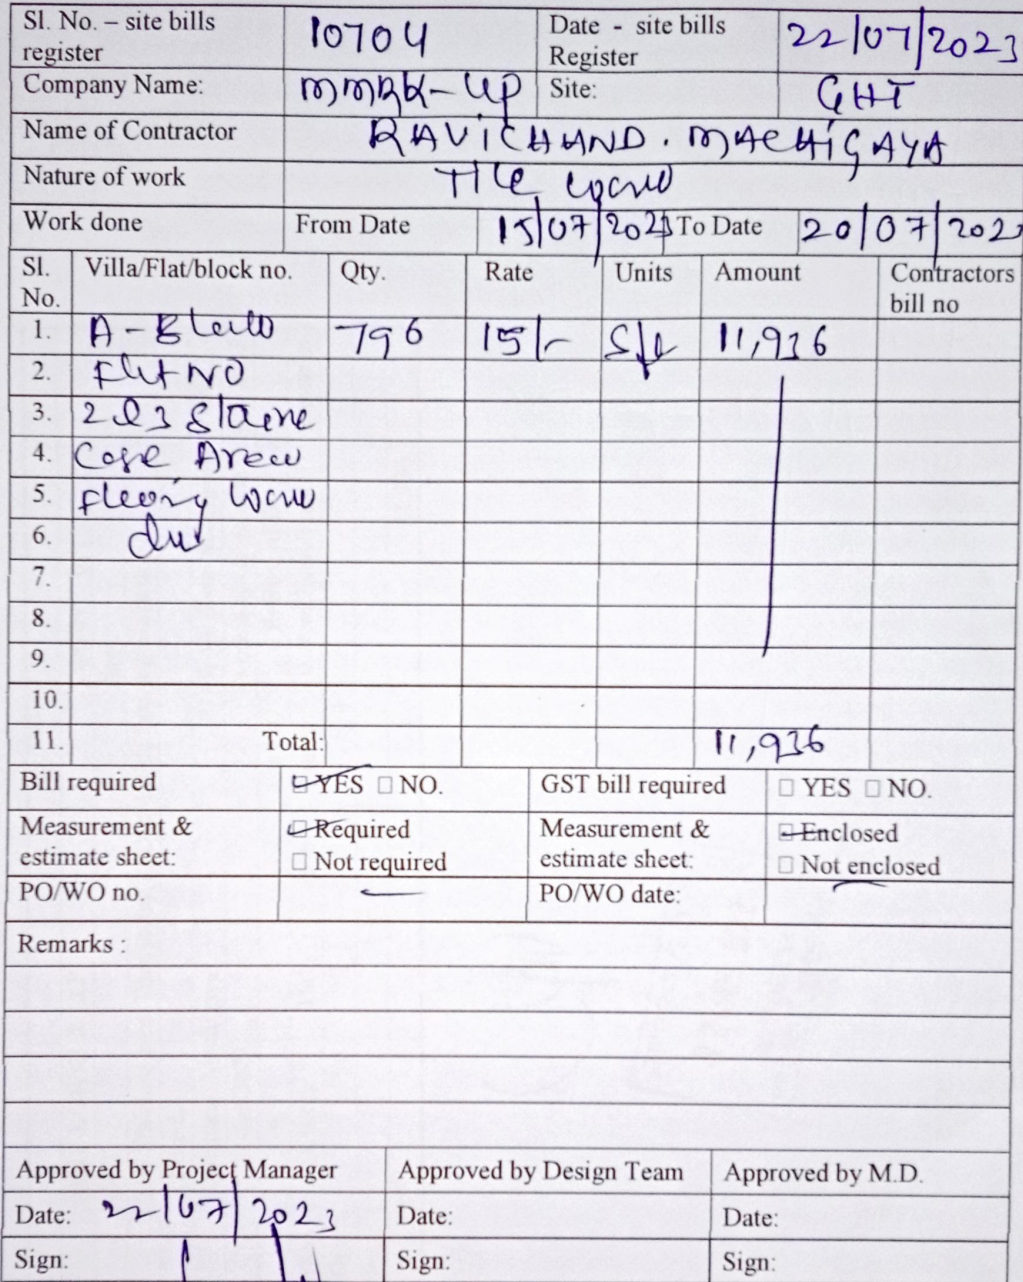 Sl. No. – site bills register 10704 Date site bills Register 22/07/2023
Company Name: Site: GHT
Name of Contractor RAVICHAND. MACHIGAYA
Nature of work Tile
Work done From Date 15/07/2023 To Date 20/07/2023
Sl. No. Villa/Flat/block no. Qty. Rate Units Amount Contractors bill no
1. A - 796 15/- sft 11,936
2. Flat NO
3. 2 3
4. Area
5.
6.
7.
8.
9.
10.
11. Total: 11,936
Bill required YES NO. GST bill required YES NO.
Measurement & estimate sheet: Required Not required Measurement & estimate sheet: Enclosed Not enclosed
PO/WO no. PO/WO date:
Remarks :
Approved by Project Manager Approved by Design Team Approved by M.D.
Date: 22/07/2023 Date: Date:
Sign: Sign: Sign: